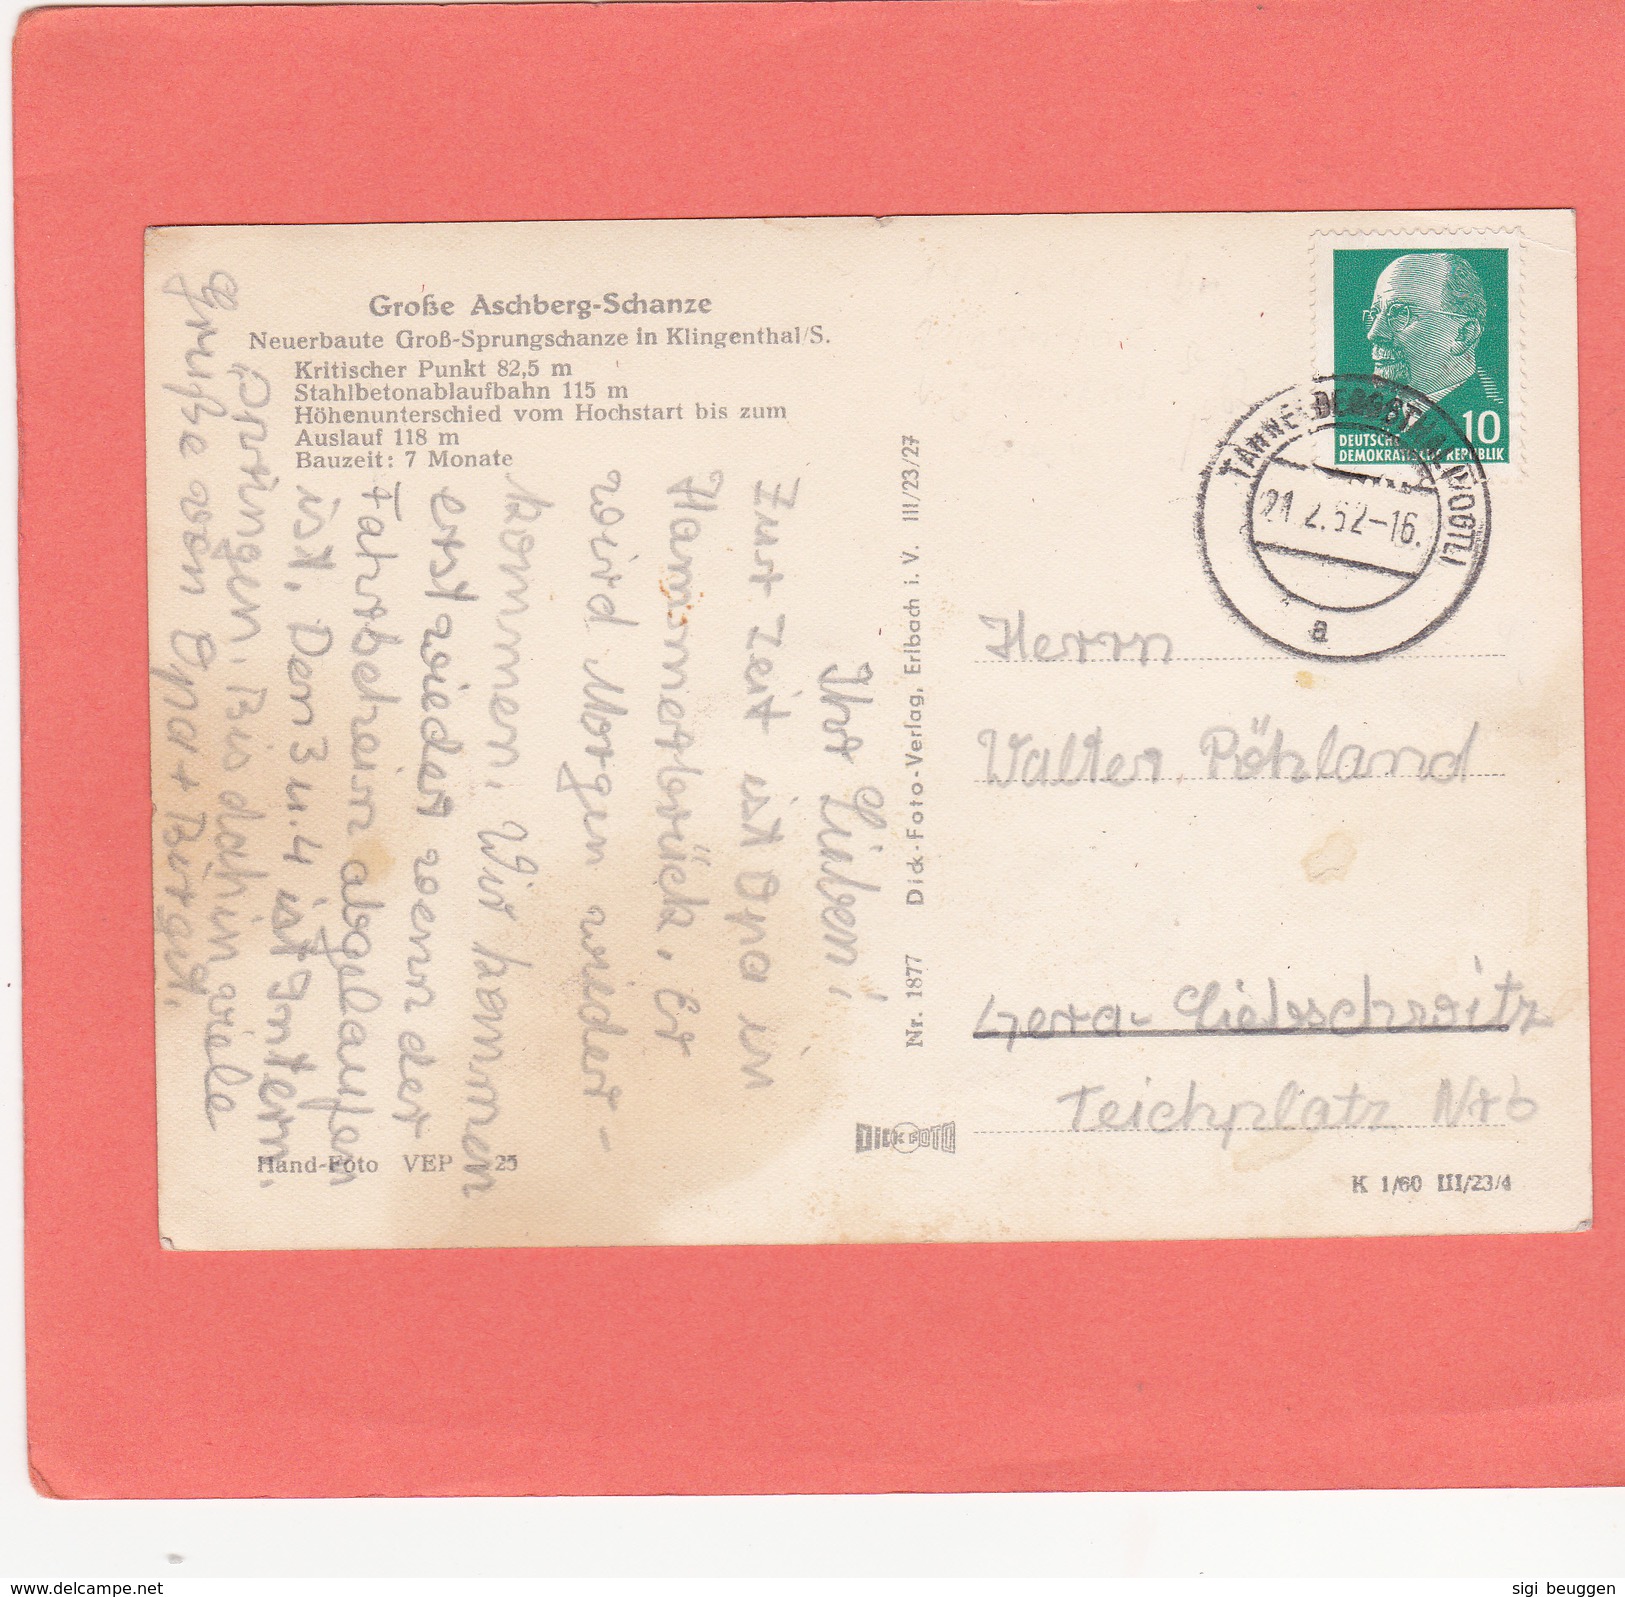 Große Aschberg-Schanze
Neuerbaute Groß-Sprungschanze in Klingenthal/S.
Kritischer Punkt 82,5 m
Stahlbetonablaufbahn 115 m
Höhenunterschied vom Hochstart bis zum
Auslauf 118 m
Bauzeit: 7 Monate
Ihr Lieben!
Zur Zeit ist Opa in
Hammerbrück. Er
wird Morgen wieder-
kommen. Wir kommen
erst wieder wenn der
Fahrbchein abgelaufen
ist. Den 3 u. 4 ist Intern.
Springen. Bis dahin viele
Grüße von Opa + Birgit.
Hand-Foto VEP 25
Nr. 1877 Dick-Foto-Verlag, Erlbach i. V. III/23/27
DICK FOTO
10
DEUTSCHE
DEMOKRATISCHE REPUBLIK
21.2.62-16.
a
Herrn
Walter Röhland
Gera-Liebschwitz
Teichplatz Nr 6
K 1/60 III/23/4
www.delcampe.net
sigi beuggen